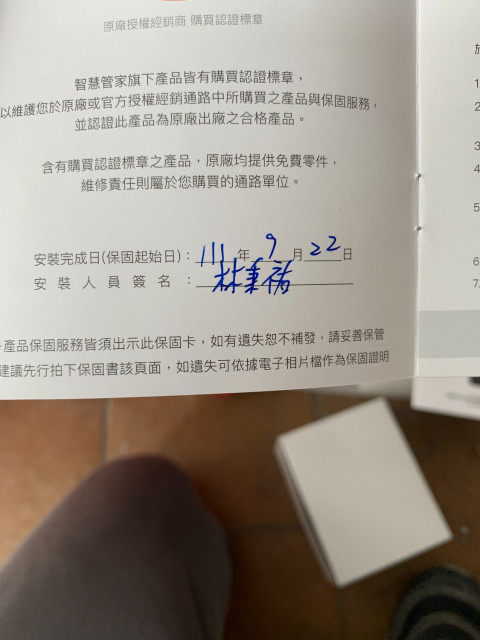 原廠授權經銷商 購買認證標章
智慧管家旗下產品皆有購買認證標章，
以維護您於原廠或官方授權經銷通路中所購買之產品與保固服務，
並認證此產品為原廠出廠之合格產品。
含有購買認證標章之產品，原廠均提供免費零件，
維修責任則屬於您購買的通路單位。
安裝完成日(保固起始日)：111年9月22日
安裝人員簽名：林秉祐
產品保固服務皆須出示此保固卡，如有遺失恕不補發，請妥善保管
建議先行拍下保固書該頁面，如遺失可依據電子相片檔作為保固證明
1.
2
3
4.
5
6
7.